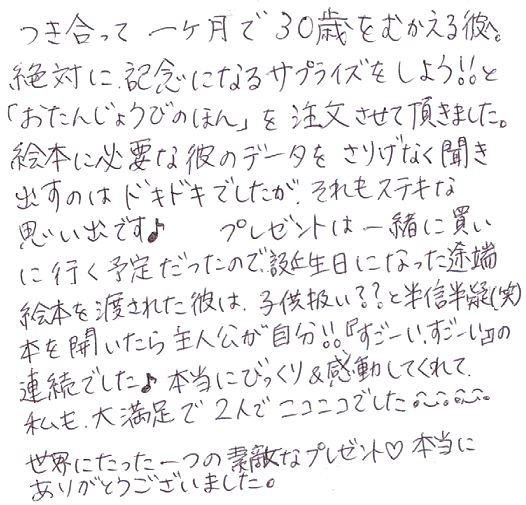 つき合って 一ケ月で 30歳をむかえる彼へ。
絶対に、記念になるサプライズをしよう!!と
「おたんじょうびのほん」を注文させて頂きました。
絵本に必要な彼のデータを さりげなく聞き
出すのは ドキドキでしたが、それもステキな
思い出です♪ プレゼントは一緒に買い
に行く予定だったので、誕生日になった途端
絵本を渡された彼は、子供扱い??と半信半疑(笑)
本を開いたら主人公が自分!!『すごーい、すごーい』の
連続でした♪ 本当にびっくり&感動してくれて、
私も、大満足で 2人でニコニコでした
世界にたった一つの素敵なプレゼント♡ 本当に
ありがとうございました。